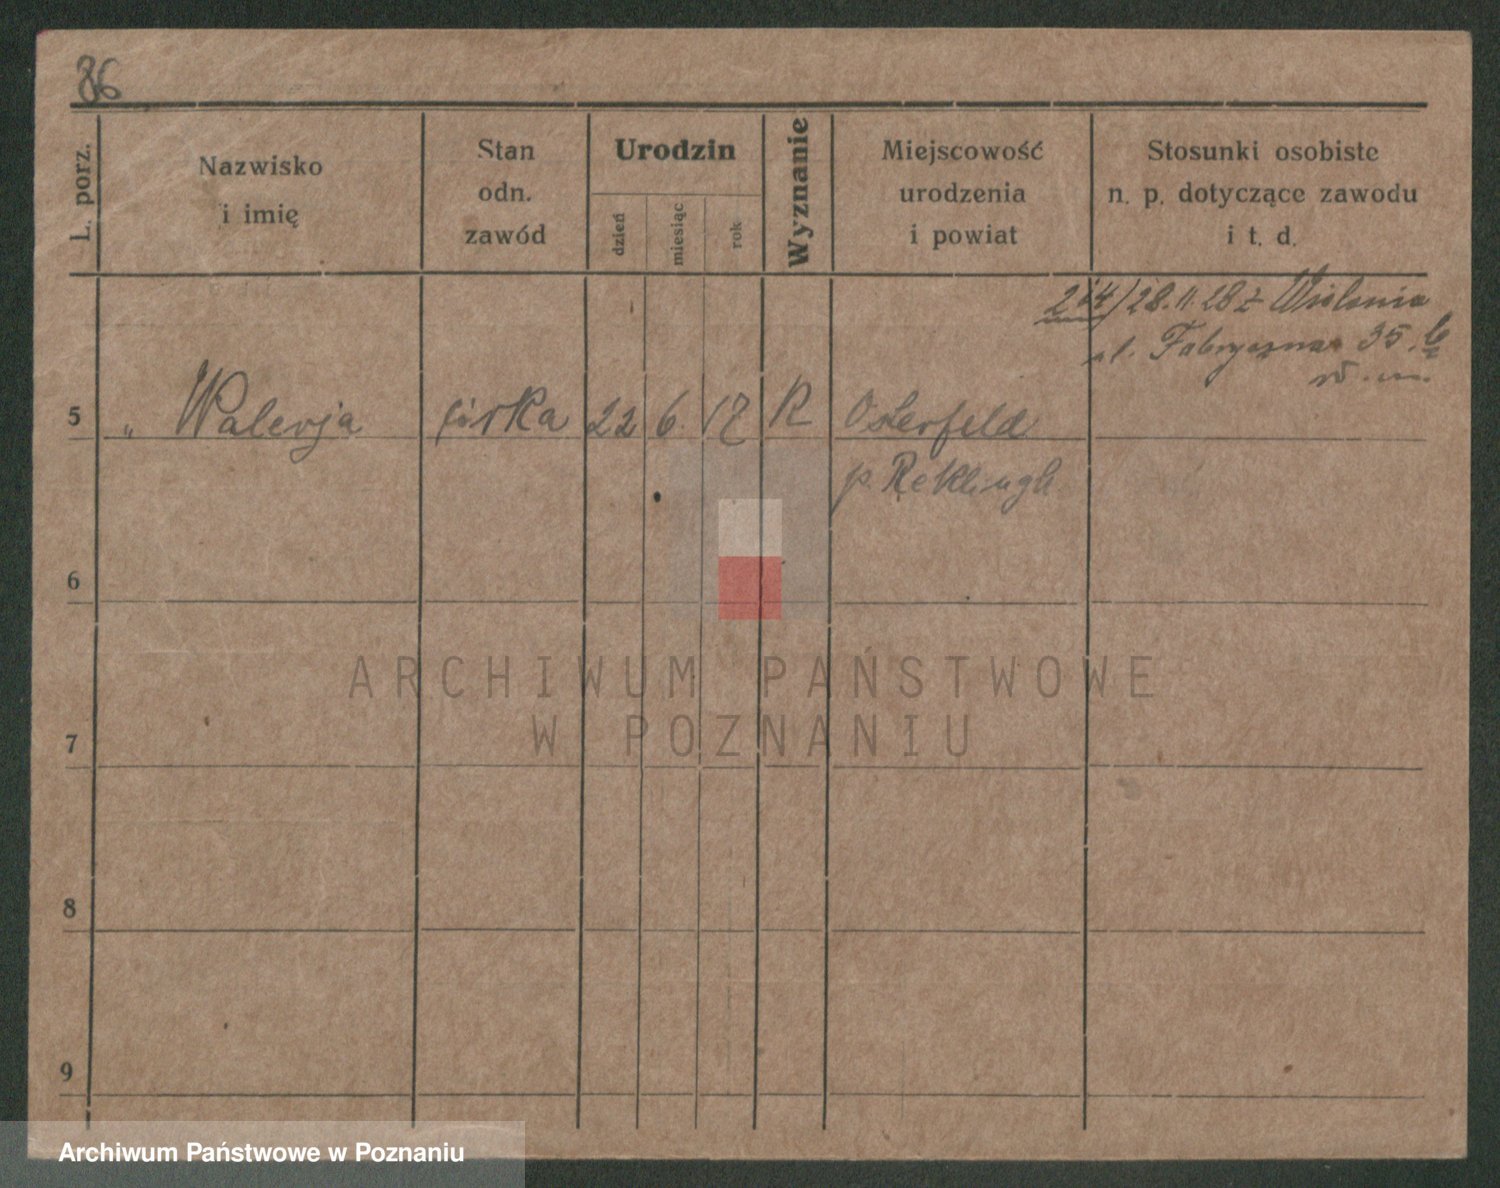 86
L. porz.
Nazwisko
i imię
Stan
odn.
zawód
Urodzin
dzień
miesiąc
rok
Wyznanie
Miejscowość
urodzenia
i powiat
Stosunki osobiste
n. p. dotyczące zawodu
i t. d.
28.11.28 z Wielenia
ul. Fabryczna 35.
5 " Walerja córka 22 6. 17 R Osterfeld
p. Reklingh
6
7
8
9
ARCHIWUM PAŃSTWOWE
W POZNANIU
Archiwum Państwowe w Poznaniu